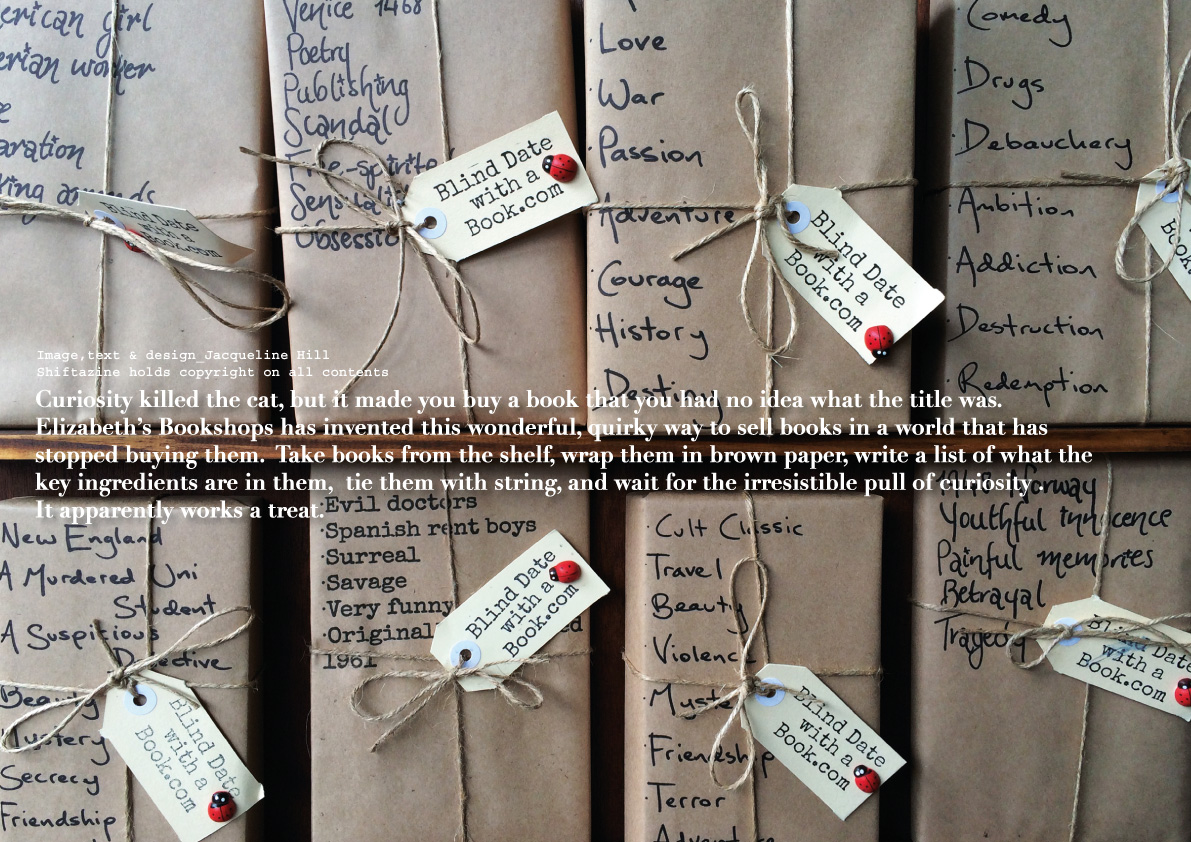 erican girl
erian worker
aration
ing amends
Blind Date
with a
Book.com
Venice 1468
Poetry
Publishing
Scandal
Free-spirite
Sensuali
Obsessio
Blind Date
with a
Book.com
·Love
·War
·Passion
·Adventure
·Courage
·History
·Destiny
Blind Date
with a
Book.com
·Comedy
·Drugs
·Debauchery
·Ambition
·Addiction
·Destruction
·Redemption
Image,text & design_Jacqueline Hill
Shiftazine holds copyright on all contents
Curiosity killed the cat, but it made you buy a book that you had no idea what the title was.
Elizabeth's Bookshops has invented this wonderful, quirky way to sell books in a world that has
stopped buying them. Take books from the shelf, wrap them in brown paper, write a list of what the
key ingredients are in them, tie them with string, and wait for the irresistible pull of curiosity.
It apparently works a treat.
New England
A Murdered Uni
Student
A Suspicious
Detective
Beauty
Mystery
Secrecy
Friendship
Blind Date
with a
Book.com
·Evil doctors
·Spanish rent boys
·Surreal
·Savage
·Very funny
·Original
1961
Blind Date
with a
Book.com
·Cult Classic
·Travel
·Beauty
·Violence
·Myste
·Friendship
·Terror
·Adventure
Blind Date
with a
Book.com
Norway
Youthful innocence
Painful memories
Betrayal
Tragedy
Blind Date
with a
Book.com